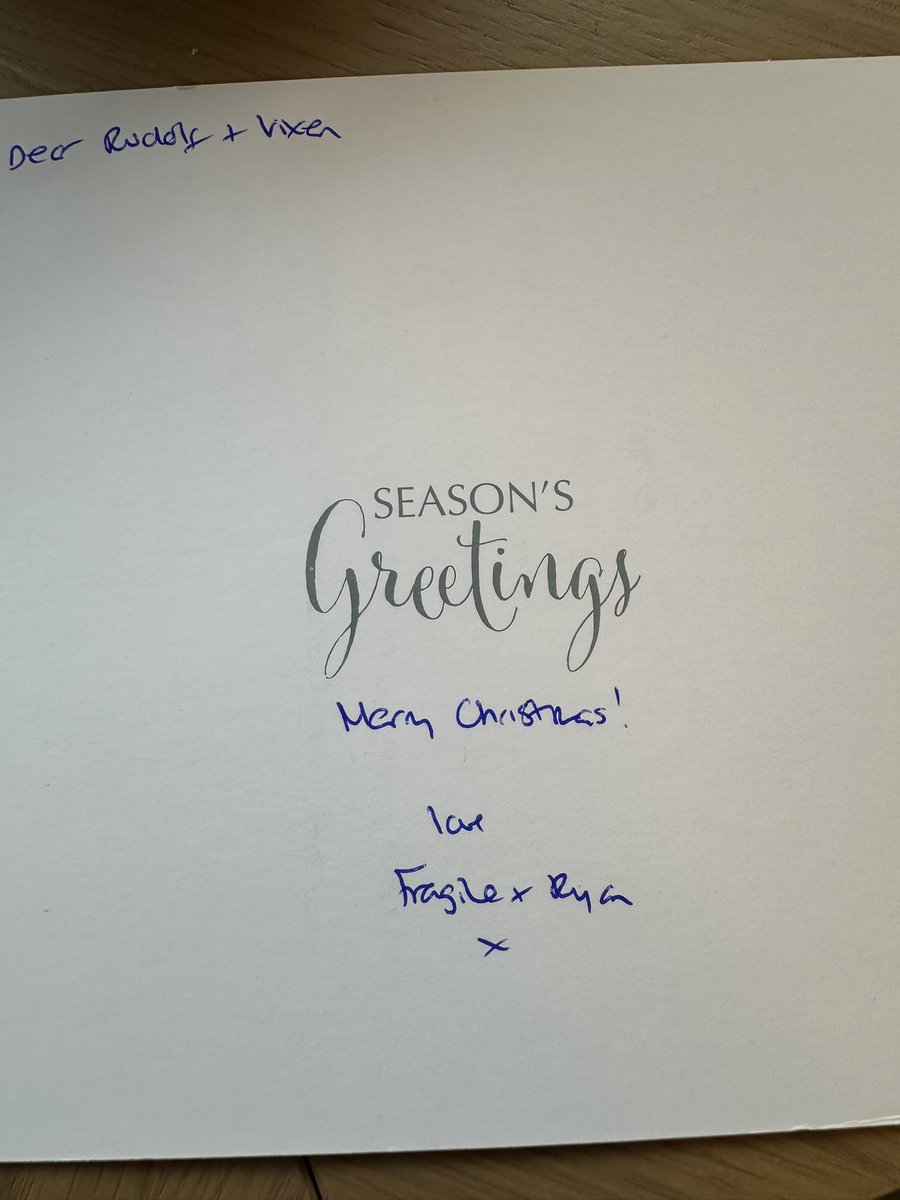 Dear Rudolf + Vixen
SEASON'S
Greetings
Merry Christmas!
love
Fragile + Ryan
x